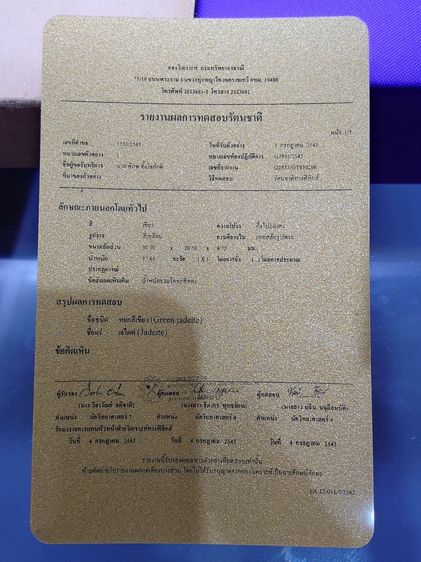 กองวิเคราะห์ กรมทรัพยากรธรณี
75/10 ถนนพระราม 6 แขวงทุ่งพญาไท เขตราชเทวี กทม. 10400
โทรศัพท์ 2023681-2 โทรสาร 2023681
รายงานผลการทดสอบรัตนชาติ
หน้า 1/1
เลขที่คำขอ 1753/2543 วันที่รับตัวอย่าง 3 กรกฎาคม 2543
หมายเลขตัวอย่าง 1 หมายเลขห้องปฏิบัติการ G2933/2543
ชื่อผู้ขอรับบริการ เลขที่รายงาน
ที่มาของตัวอย่าง วิธีทดสอบ รัตนชาติทางฟิสิกส์
ลักษณะภายนอกโดยทั่วไป
สี เขียว ความโปร่ง กึ่งโปร่งแสง
รูปร่าง สี่เหลี่ยม การเจียระไน
ขนาดสัดส่วน x 20.50 x 4.73 มม.
น้ำหนัก 57.65 กะรัต ( X ) โดยการชั่ง ( ) โดยการประมาณ
ปรากฏการณ์
ข้อสังเกตเพิ่มเติม น้ำหนักรวมโลหะสีทอง
สรุปผลการทดสอบ
ชื่อชนิด หยกสีเขียว (Green jadeite)
ชื่อแร่ เจไดต์ (Jadeite)
ข้อคิดเห็น
ผู้รับรอง ผู้ทดสอบ ผู้ทดสอบ
ตำแหน่ง นักวิทยาศาสตร์ 7 ตำแหน่ง นักวิทยาศาสตร์ 4 ตำแหน่ง นักวิทยาศาสตร์ 4
รักษาราชการแทนหัวหน้าฝ่ายวิเคราะห์ทางฟิสิกส์
วันที่ 4 กรกฎาคม 2543 วันที่ 4 กรกฎาคม 2543 วันที่ 4 กรกฎาคม 2543
รายงานนี้รับรองผลเฉพาะตัวอย่างที่ทดสอบเท่านั้น
ห้ามคัดถ่ายใบรายงานผลแต่เพียงบางส่วน โดยไม่ได้รับอนุญาตจากกองวิเคราะห์เป็นลายลักษณ์อักษร
FA-12-014/7/2543